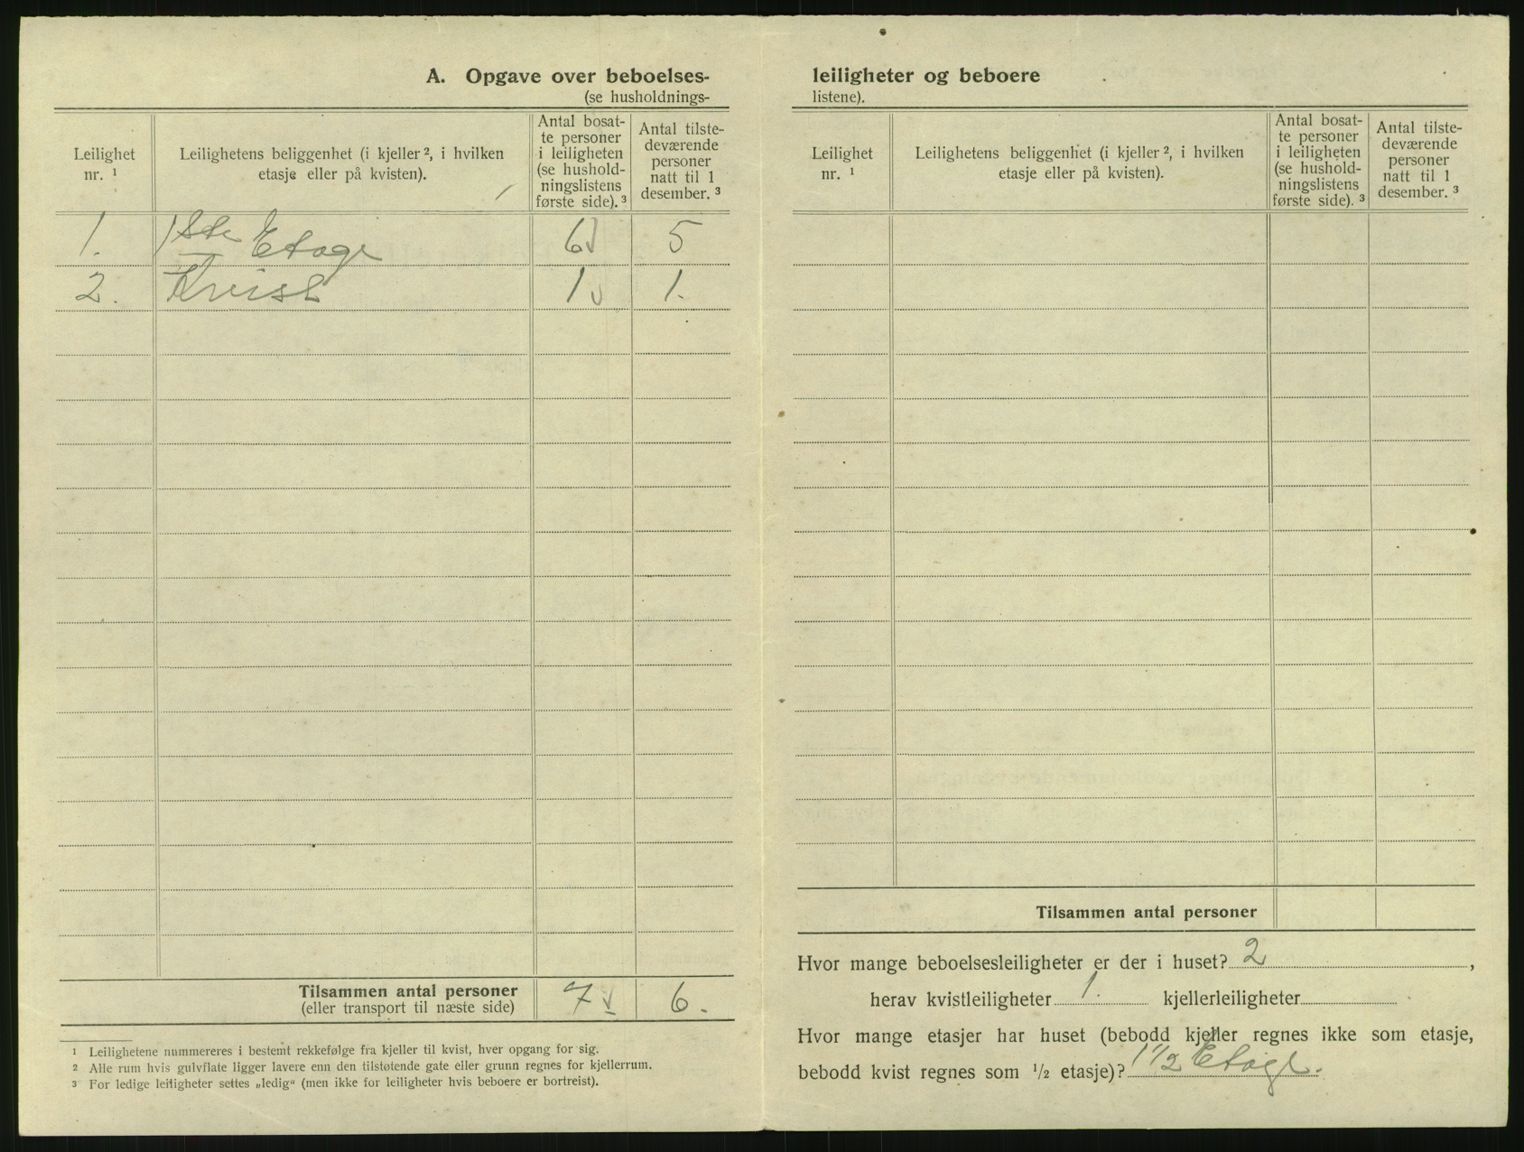 A. Opgave over beboelses-
(se husholdnings-
Leilighet
nr. ¹
Leilighetens beliggenhet (i kjeller ², i hvilken
etasje eller på kvisten).
Antal bosat-
te personer
i leiligheten
(se hushold-
ningslistens
første side). ³
Antal tilste-
deværende
personer
natt til 1
desember. ³
1. 1ste Etage 6 5
2. Kvist 1 1.
Tilsammen antal personer
(eller transport til næste side)
7 6.
¹ Leilighetene nummereres i bestemt rekkefølge fra kjeller til kvist, hver opgang for sig.
² Alle rum hvis gulvflate ligger lavere enn den tilstøtende gate eller grunn regnes for kjellerrum.
³ For ledige leiligheter settes „ledig“ (men ikke for leiligheter hvis beboere er bortreist).
leiligheter og beboere
listene).
Leilighet
nr. ¹
Leilighetens beliggenhet (i kjeller ², i hvilken
etasje eller på kvisten).
Antal bosat-
te personer
i leiligheten
(se hushold-
ningslistens
første side). ³
Antal tilste-
deværende
personer
natt til 1
desember. ³
Tilsammen antal personer
Hvor mange beboelsesleiligheter er der i huset? 2,
herav kvistleiligheter 1. kjellerleiligheter
Hvor mange etasjer har huset (bebodd kjeller regnes ikke som etasje,
bebodd kvist regnes som ½ etasje)? 1 ½ Etage.